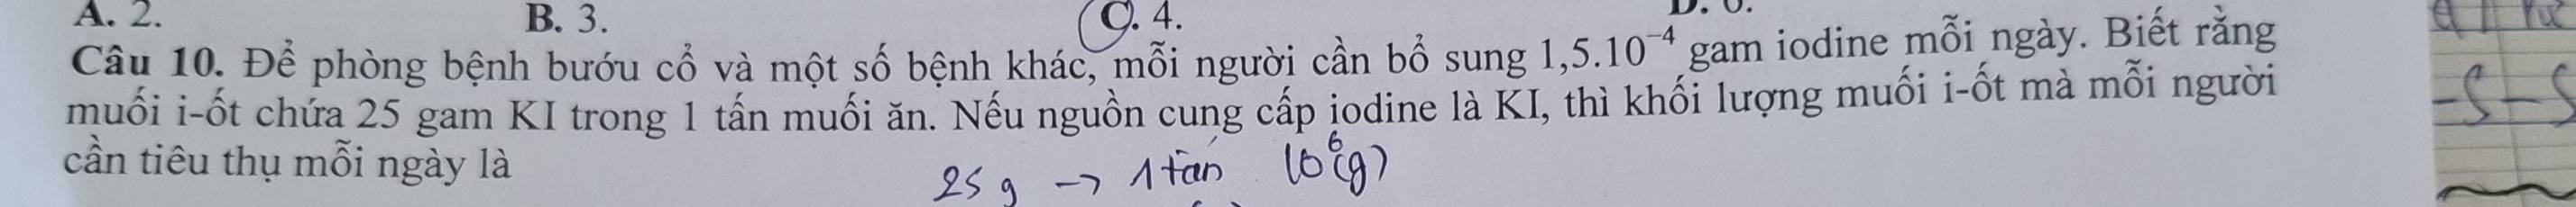 A. 2. B. 3. C. 4. D. 6.
Câu 10. Để phòng bệnh bướu cổ và một số bệnh khác, mỗi người cần bổ sung 1,5.10⁻⁴ gam iodine mỗi ngày. Biết rằng
muối i-ốt chứa 25 gam KI trong 1 tấn muối ăn. Nếu nguồn cung cấp iodine là KI, thì khối lượng muối i-ốt mà mỗi người
cần tiêu thụ mỗi ngày là
25 g → 1 tấn 10⁶(g)